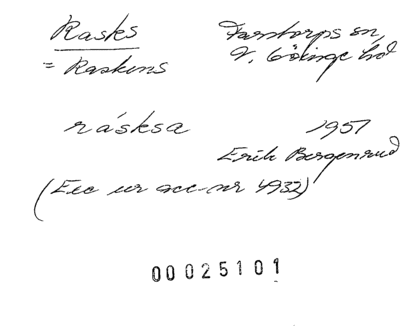 Rasks
Farstorps sn,
V. Göinge hd
= Raskens
råsksa
1957
Erik Bergenrud
(Exc ur acc.nr 4932)
00025101